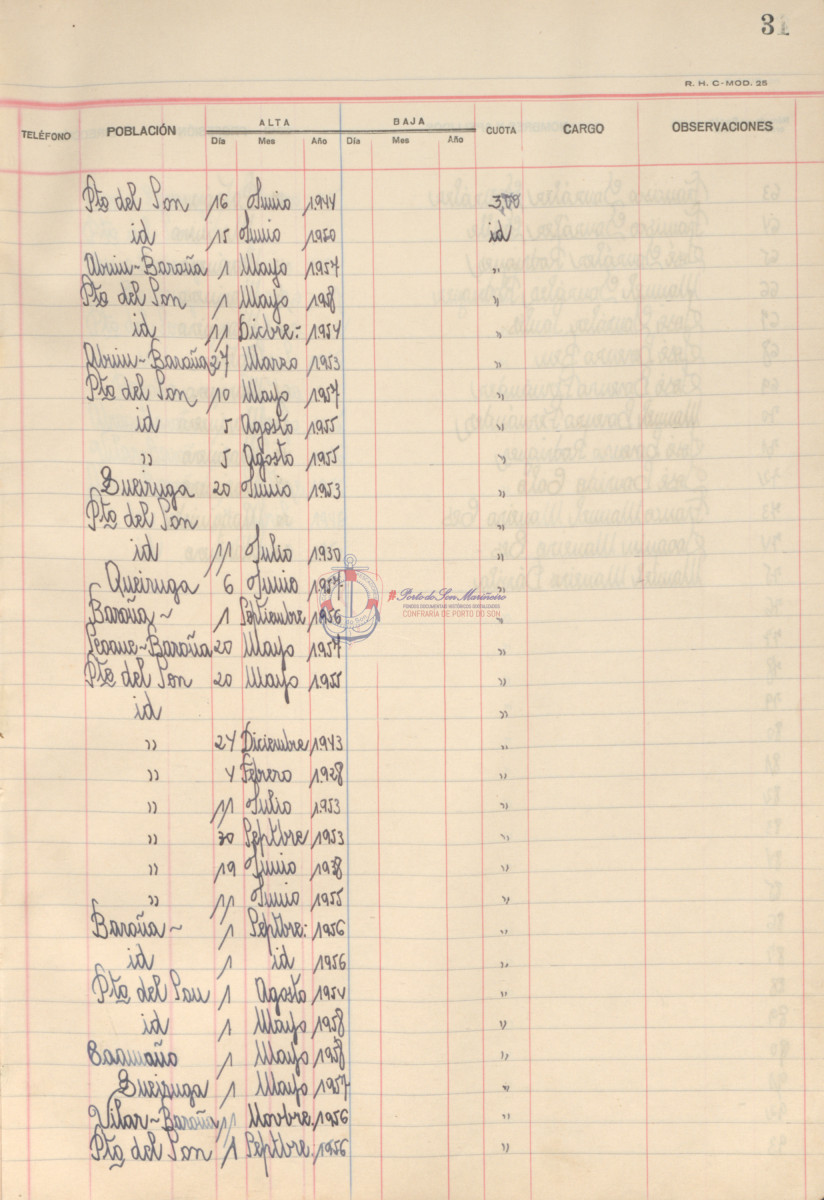 31
R. H. C-MOD. 25
TELÉFONO POBLACIÓN ALTA BAJA CUOTA CARGO OBSERVACIONES
Día Mes Año Día Mes Año
Pto del Son 16 Junio 1944 3,00
id 15 Junio 1950 id
Abuin-Baroña 1 Mayo 1957 "
Pto del Son 1 Mayo "
id 11 Dicbre- 1954 "
Abuin-Baroña 27 Marzo 1953 "
Pto del Son 10 Mayo 1957 "
id 5 Agosto 1955 "
" 5 Agosto 1955 "
Queiruga 20 Junio 1953 "
Pto del Son "
id 11 Julio 1930 "
Queiruga 6 Junio 1957 "
Baroña - 1 Septiembre 1956 "
Seoane-Baroña 20 Mayo 1957 "
Pto del Son 20 Mayo 1955 "
id "
" 24 Diciembre 1943 "
" 4 Febrero 1928 "
" 11 Julio 1953 "
" 30 Septbre 1953 "
" 19 Junio 1938 "
" 11 Junio 1955 "
Baroña - 1 Septbre: 1956 "
id 1 id 1956 "
Pto del Son 1 Agosto "
id 1 Mayo 1958 "
Caamaño 1 Mayo 1958 "
Queiruga 1 Mayo 1957 "
Vilar-Baroña 11 Novbre. 1956 "
Pto del Son 1 Septbre. 1956 "
Porto do Son Mariñeiro
FONDOS DOCUMENTAIS HISTÓRICOS DIXITALIZADOS
CONFRARÍA DE PORTO DO SON